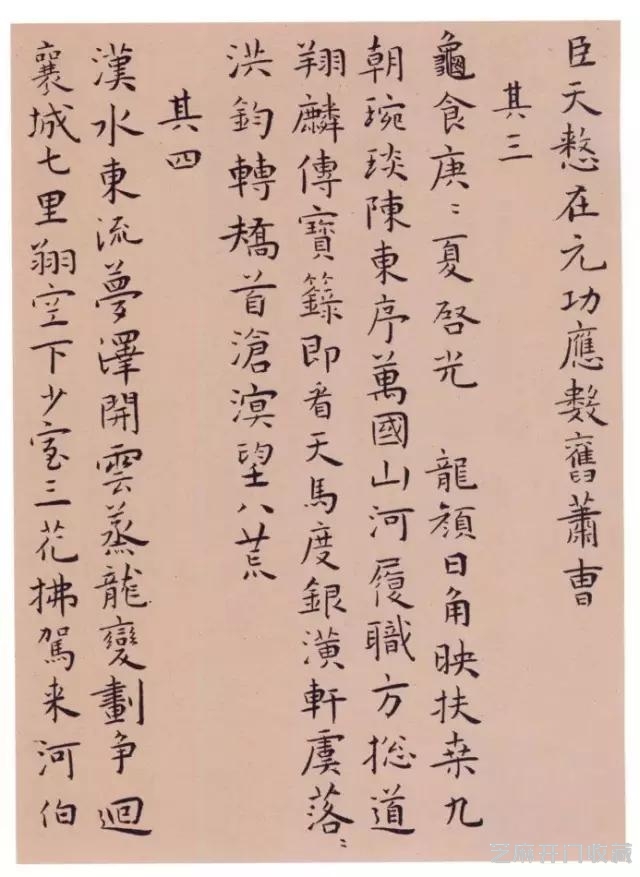 臣天憗在元功應數舊蕭曹
其三
龜食庚〻夏啓光　龍顏日角映扶桑九
朝琬琰陳東序萬國山河履職方捴道
翔麟傳寶籙即看天馬度銀潢軒虞落〻
洪鈞轉矯首滄溟望八荒
其四
漢水東流夢澤開雲蒸龍變劃爭迴
襄城七里翔空下少室三花拂駕来河伯
芝麻开门收藏